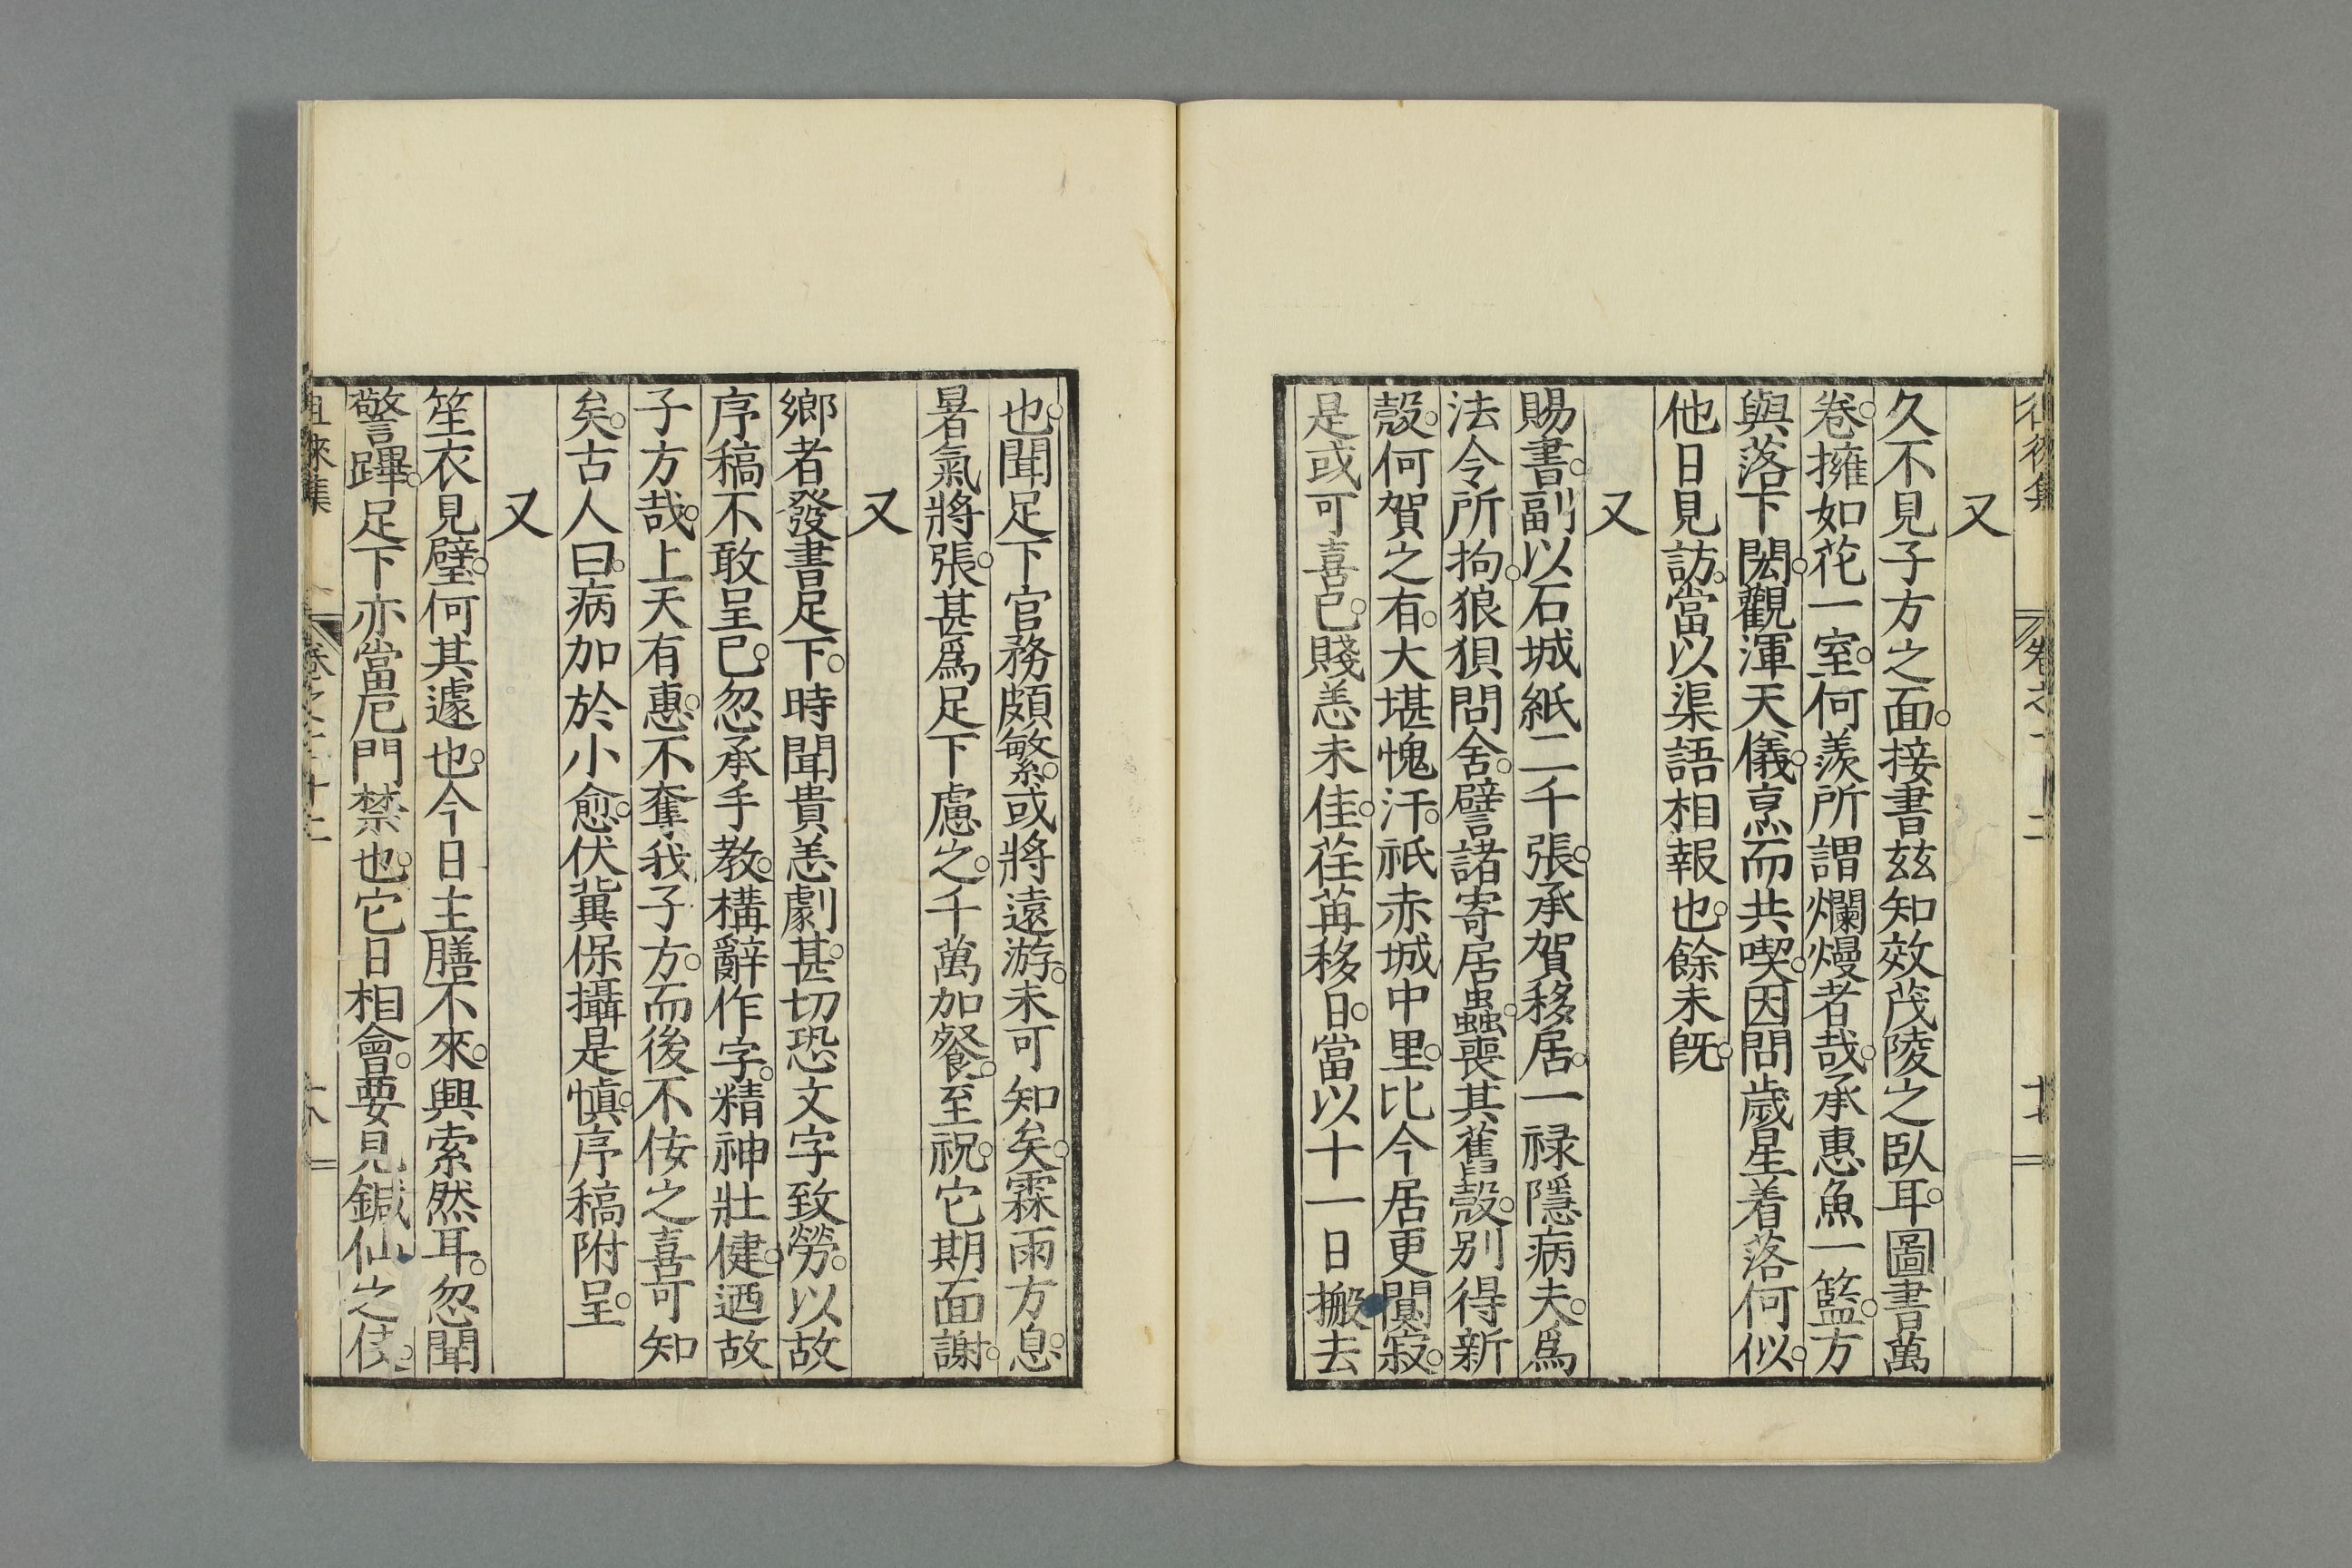 又
久不見子方之面。接書玆知效茂陵之臥耳。圖書萬
卷。擁如花一室。何羨所謂爛熳者哉。承惠魚一籃。方
與落下閎。觀渾天儀。烹而共喫。因問歲星着落何似。
他日見訪。當以渠語相報也。餘未旣。
又
賜書。副以石城紙二千張。承賀移居。一祿隱病夫。爲
法令所拘。狼狽問舍。譬諸寄居蟲。喪其舊殼。別得新
殼。何賀之有。大堪愧汗。祇赤城中里。比今居更闃寂。
是或可喜已。賤恙未佳。荏苒移日。當以十一日搬去
也。聞足下官務頗繁。或將遠游。未可知矣。霖雨方息。
暑氣將張。甚爲足下慮之。千萬加餐。至祝。它期面謝。
又
鄉者發書足下。時聞貴恙劇甚。切恐文字致勞。以故
序稿不敢呈已。忽承手教。構辭作字。精神壯健。迺故
子方哉。上天有惠。不奪我子方。而後不佞之喜可知
矣。古人曰。病加於小愈。伏冀保攝是愼。序稿附呈。
又
笙衣見璧。何其遽也。今日主膳不來。興索然耳。忽聞
警蹕。足下亦當厄門禁也。它日相會。要見鍼仙之伎。
徂徠集 卷之二十二